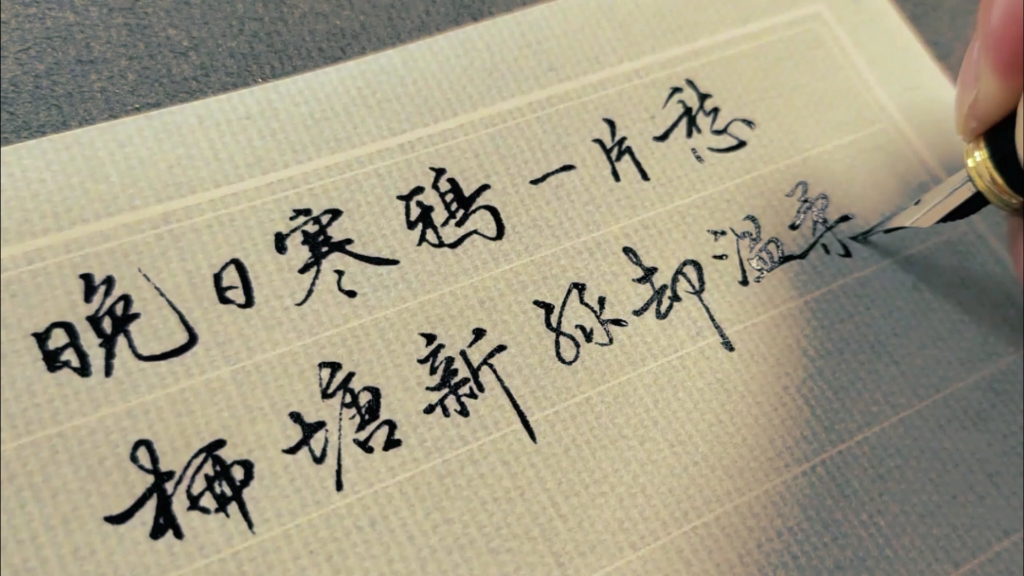 晚日寒鸦一片愁
柳塘新绿却温柔